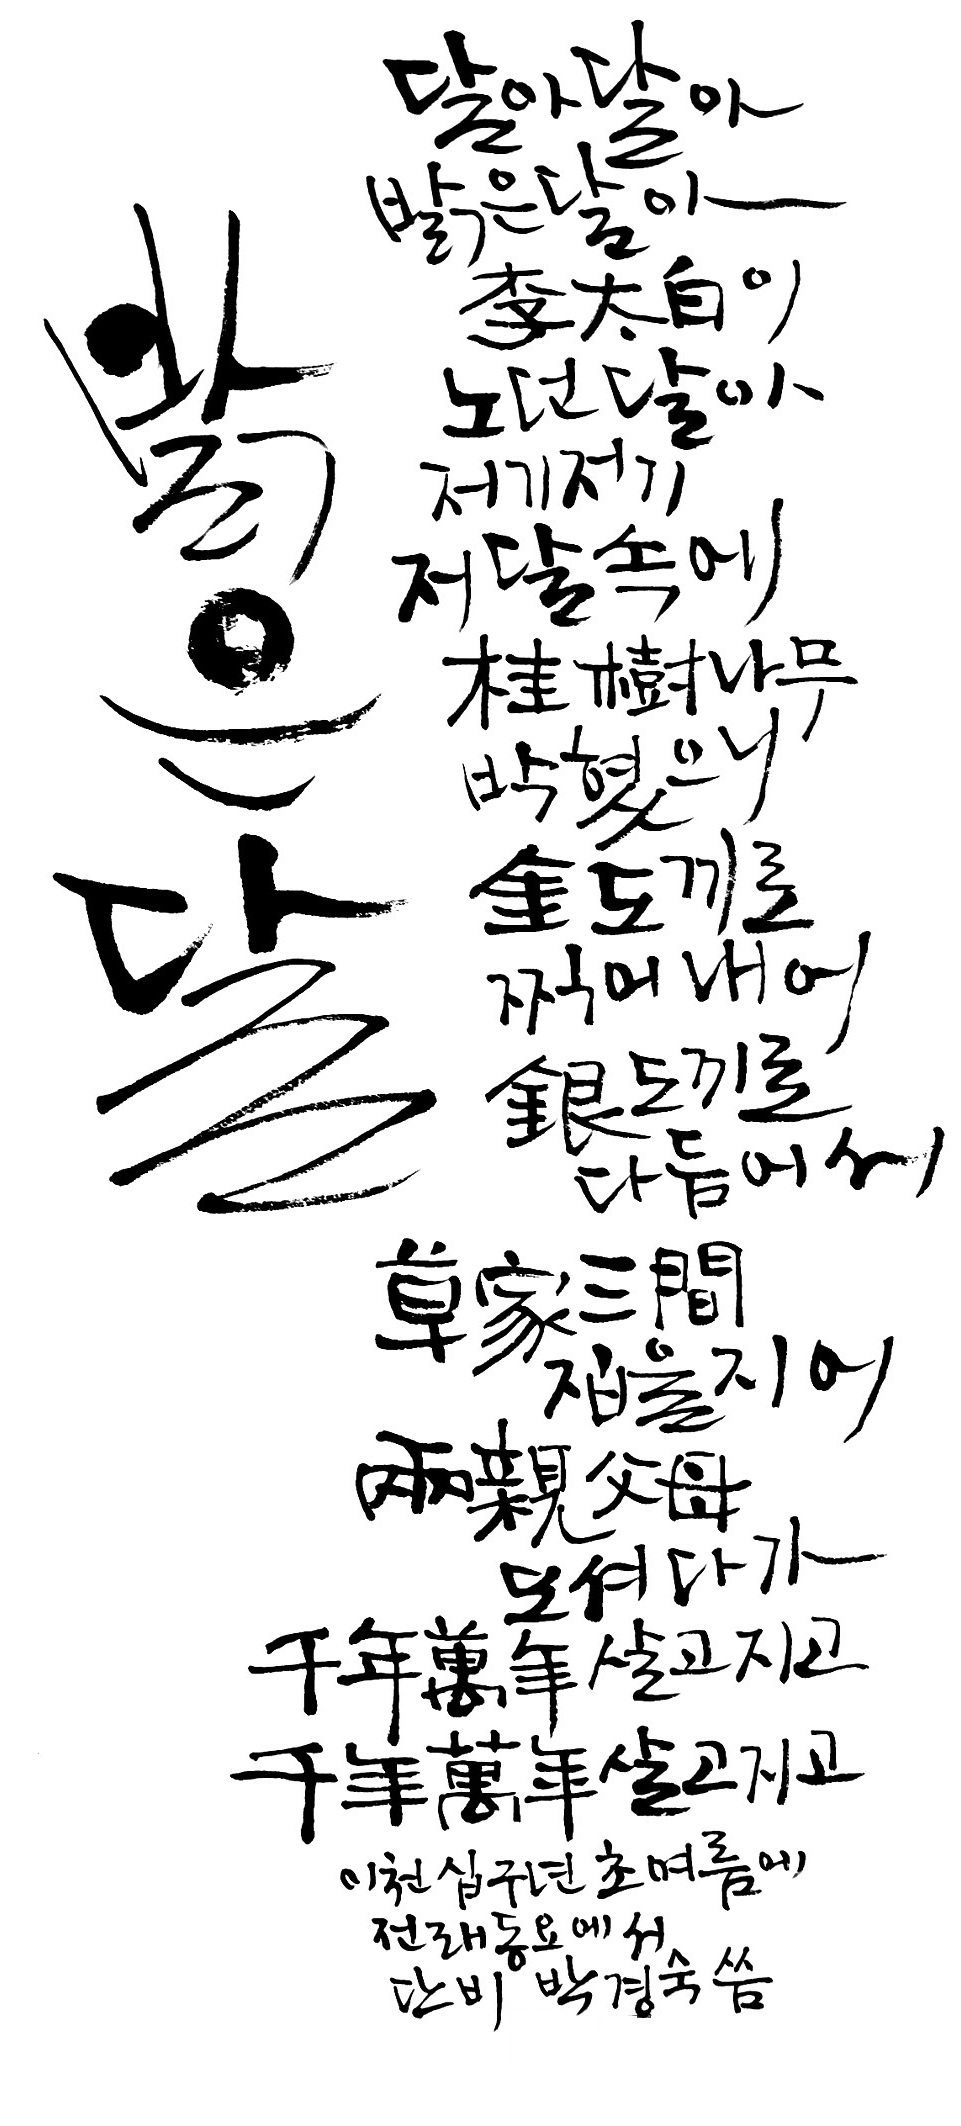 밝은달
달아달아
밝은달아
李太白이
노던달아
저기저기
저달속에
桂樹나무
박혔으니
金도끼로
찍어내어
銀도끼로
다듬어서
草家三間
집을지어
兩親父母
모셔다가
千年萬年살고지고
千年萬年살고지고
이천십구년초여름에
전래동요에서
단비 박경숙씀